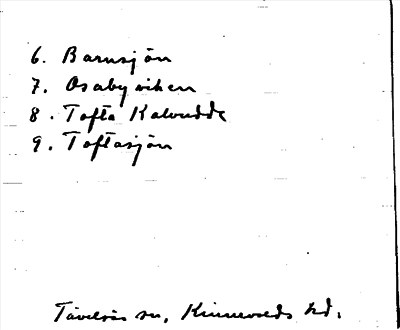 6. Barnsjön
7. Osabyviken
8. Tofta Kalvudde
9. Toftasjön
Tävelsås sn, Kinnevalds hd.